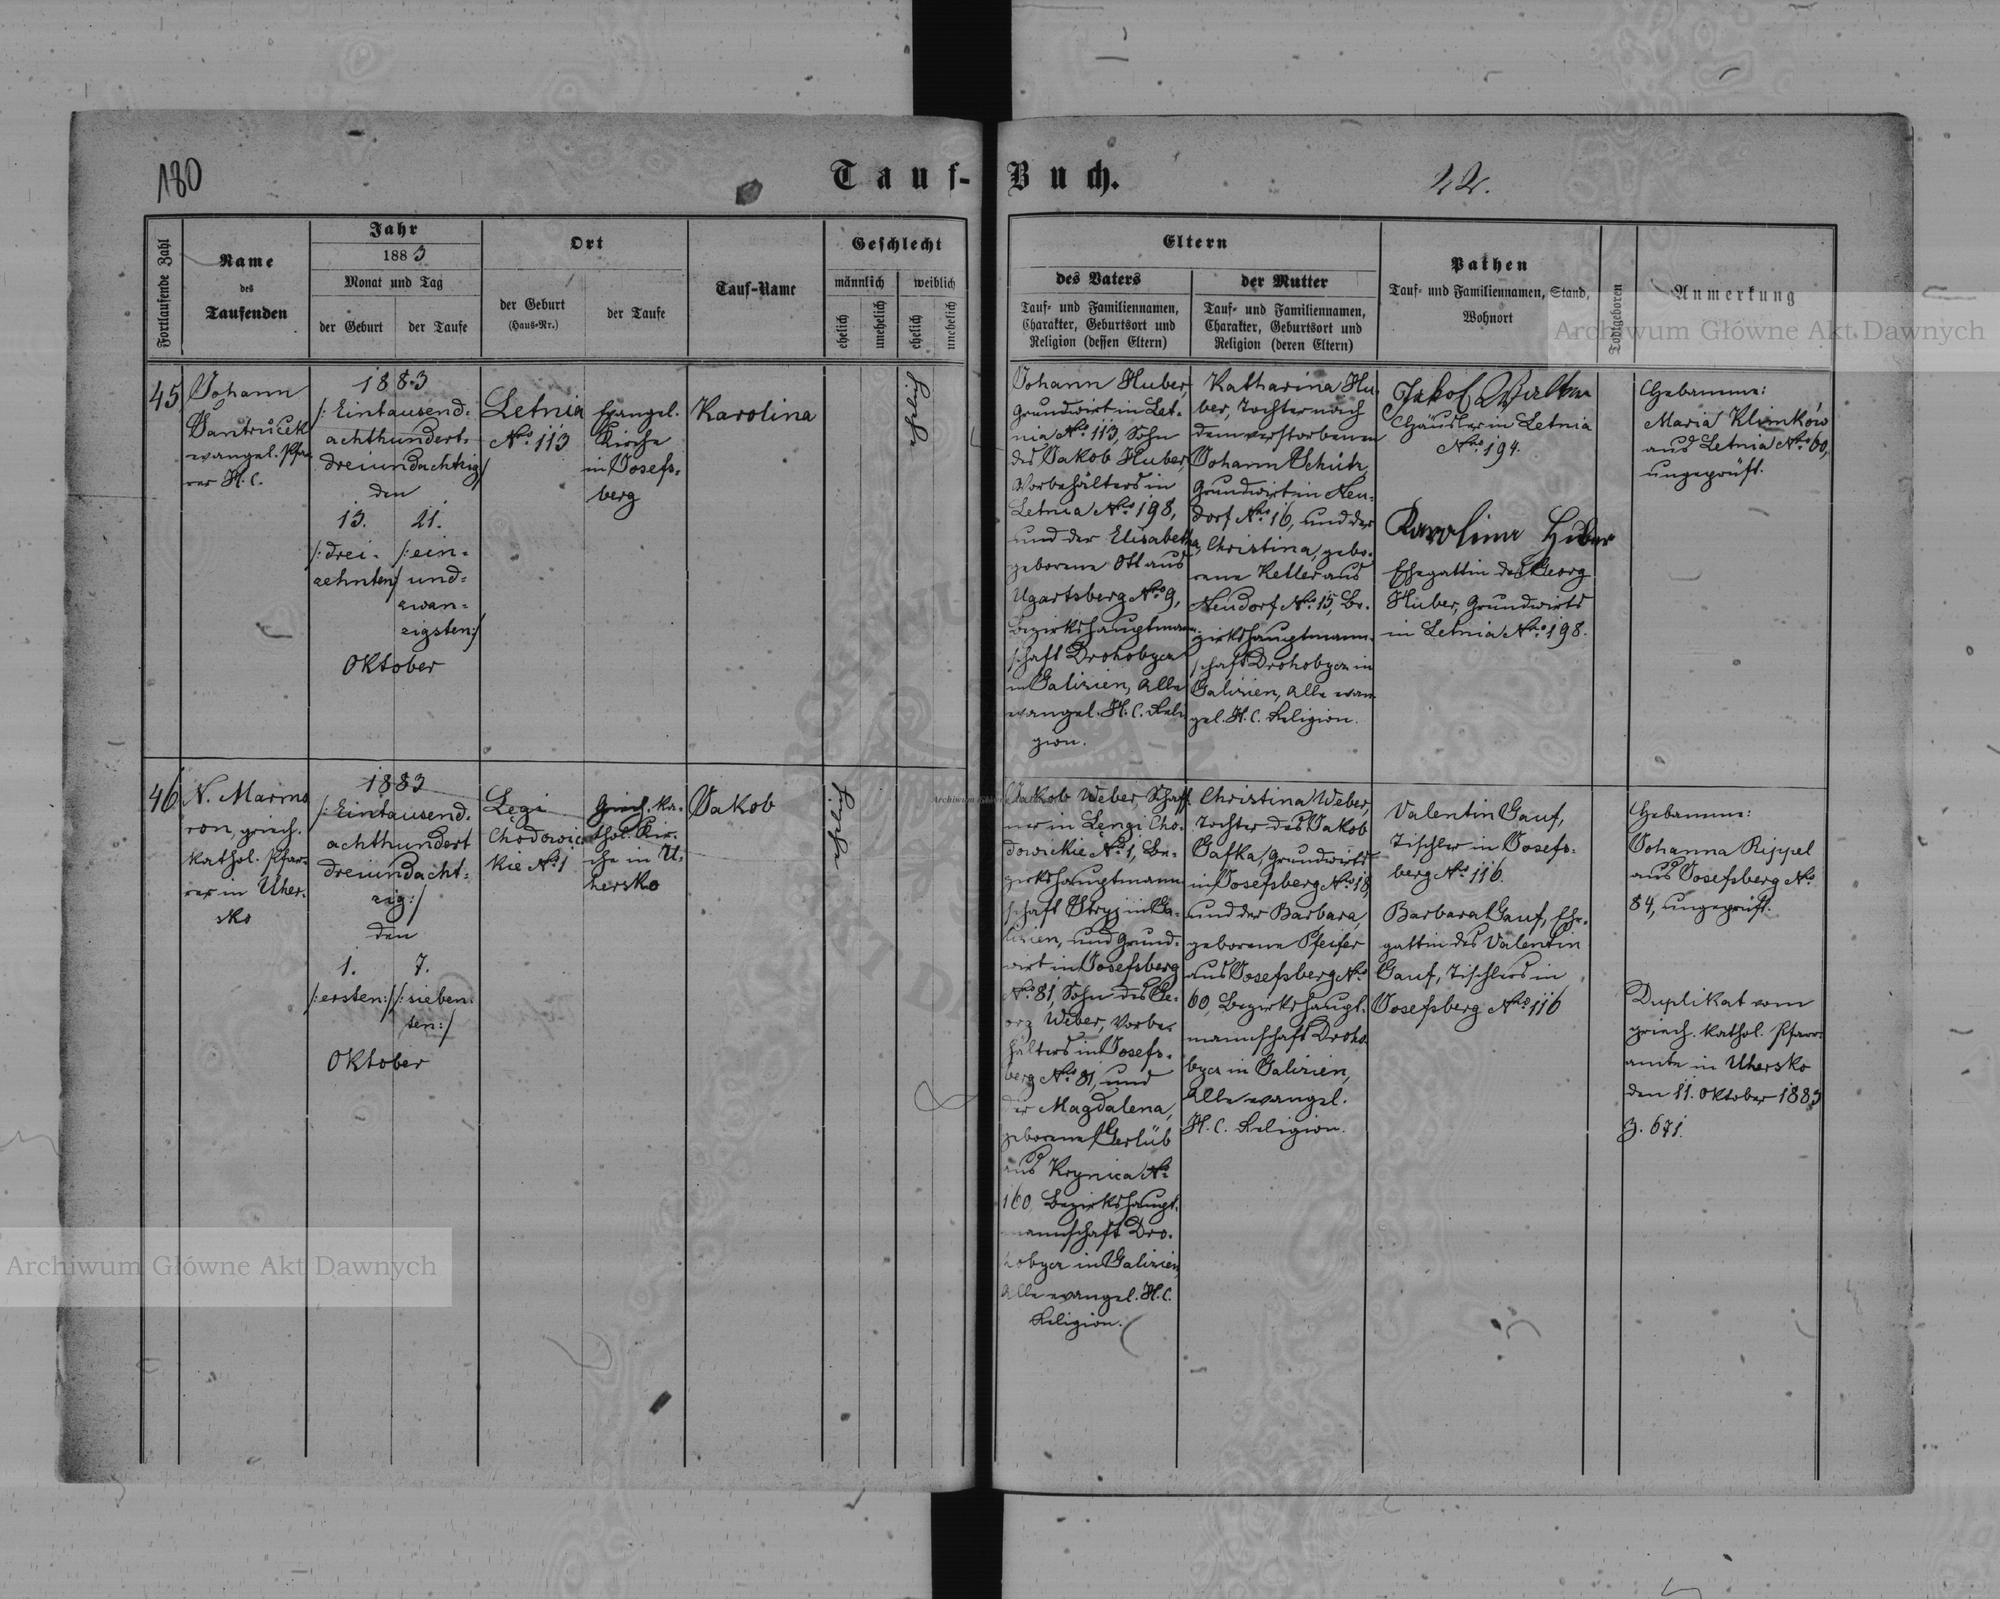 180
Tauf-Buch.
22.
Fortlaufende Zahl
Name
des
Taufenden
Jahr
1883
Monat und Tag
der Geburt
der Taufe
Ort
der Geburt
(Haus-Nr.)
der Taufe
Tauf-Name
Geschlecht
männlich
weiblich
ehelich
unehelich
ehelich
unehelich
Eltern
des Vaters
Tauf- und Familiennamen,
Charakter, Geburtsort und
Religion (dessen Eltern)
der Mutter
Tauf- und Familiennamen,
Charakter, Geburtsort und
Religion (deren Eltern)
Pathen
Tauf- und Familiennamen, Stand,
Wohnort
Todtgeboren
Anmerkung
45
Johann
evangel. Pfar-
rer H. C.
1883
/: Eintausend-
achthundert-
dreiundachtzig /
den
13.
/: drei-
zehnten /
21.
/: ein-
und-
zwan-
zigsten :/
Oktober
Letnia
Nro 113
Evangel.
Kirche
in Josefs-
berg
Karolina
Johann Huber,
Grundwirt in Let-
nia Nro 113, Sohn
des Jakob Huber,
Vorbehälters in
Letnia Nro 198,
und der Elisabetha
geborene Ott aus
Ugartsberg Nro 9,
Bezirkshauptmann-
schaft Drohobycz
in Galizien, Alle
evangel. H. C. Reli
gion.
Katharina Hu-
ber, Tochter nach
dem verstorbenen
Johann Schütz,
Grundwirt in Neu-
dorf Nro 16, und der
Christina, gebo-
rene Keller aus
Neudorf Nro 15, Be-
zirkshauptmann-
schaft Drohobycz in
Galizien, Alle evan
gel. H. C. Religion.
Jakob
Häusler in Letnia
Nro 194.
Karolina Huber
Ehegattin des Georg
Huber, Grundwirts
in Letnia Nro 198.
Hebamme:
Maria Klimków
aus Letnia Nro 60,
ungeprüft.
46
N. Marmo
ron, griech.
kathol. Pfar-
rer in Uher-
sko
1883
/: Eintausend-
achthundert
dreiundacht-
zig :/
den
1.
/: ersten :/
7.
/: sieben-
ten :/
Oktober
Łęgi
Chodowic
kie Nro 1
Griech. ka-
thol. Kir-
che in U-
hersko
Jakob
Jakob Weber, Schaff
ner in Łęngi Cho-
dowickie Nro 1, Be-
zirkshauptmann
schaft Stryj in Ga-
lizien, und Grund-
wirt in Josefsberg
Nro 81, Sohn des Ge-
org Weber, Vorbe-
hälters in Josefs-
berg Nro 81, und
der Magdalena,
geborene Gerlüb
aus Krynica Nro
160, Bezirkshaupt-
mannschaft Dro-
hobycz in Galizien,
Alle evangel. H. C.
Religion.
Christina Weber,
Tochter des Jakob
Gafka, Grundwirts
in Josefsberg Nro 18,
und der Barbara,
geborene Pfeifer
aus Josefsberg Nro
60, Bezirkshaupt-
mannschaft Droho-
bycz in Galizien,
Alle evangel.
H. C. Religion.
Valentin Gauf,
Tischler in Josefs-
berg Nro 116.
Barbara Gauf, Ehe-
gattin des Valentin
Gauf, Tischlers in
Josefsberg Nro 116
Hebamme:
Johanna Rippel
aus Josefsberg Nro
84, ungeprüft.
Duplikat vom
griech. kathol. Pfarr-
amte in Uhersko
den 11. Oktober 1883
Z. 671.
Archiwum Główne Akt Dawnych
Archiwum Główne Akt Dawnych